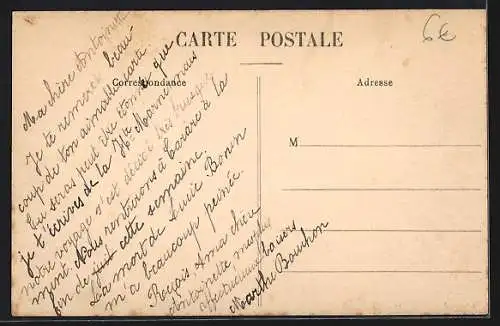 CARTE POSTALE
6€
Correspondance
Adresse
M
Ma chère Antoinette
Je te remercie beau-
coup de ton aimable carte.
Tu seras peut être étonnée que
je t'écrives de la Hte Marne mais
notre voyage s'est décidé très brusque-
ment. Nous rentrerons à Tavare à la
fin de cette semaine.
La mort de Louis Bonin
m'a beaucoup peinée.
Reçois ma chère
Antoinette mes plus
affectueux baisers
Marthe Bouchon